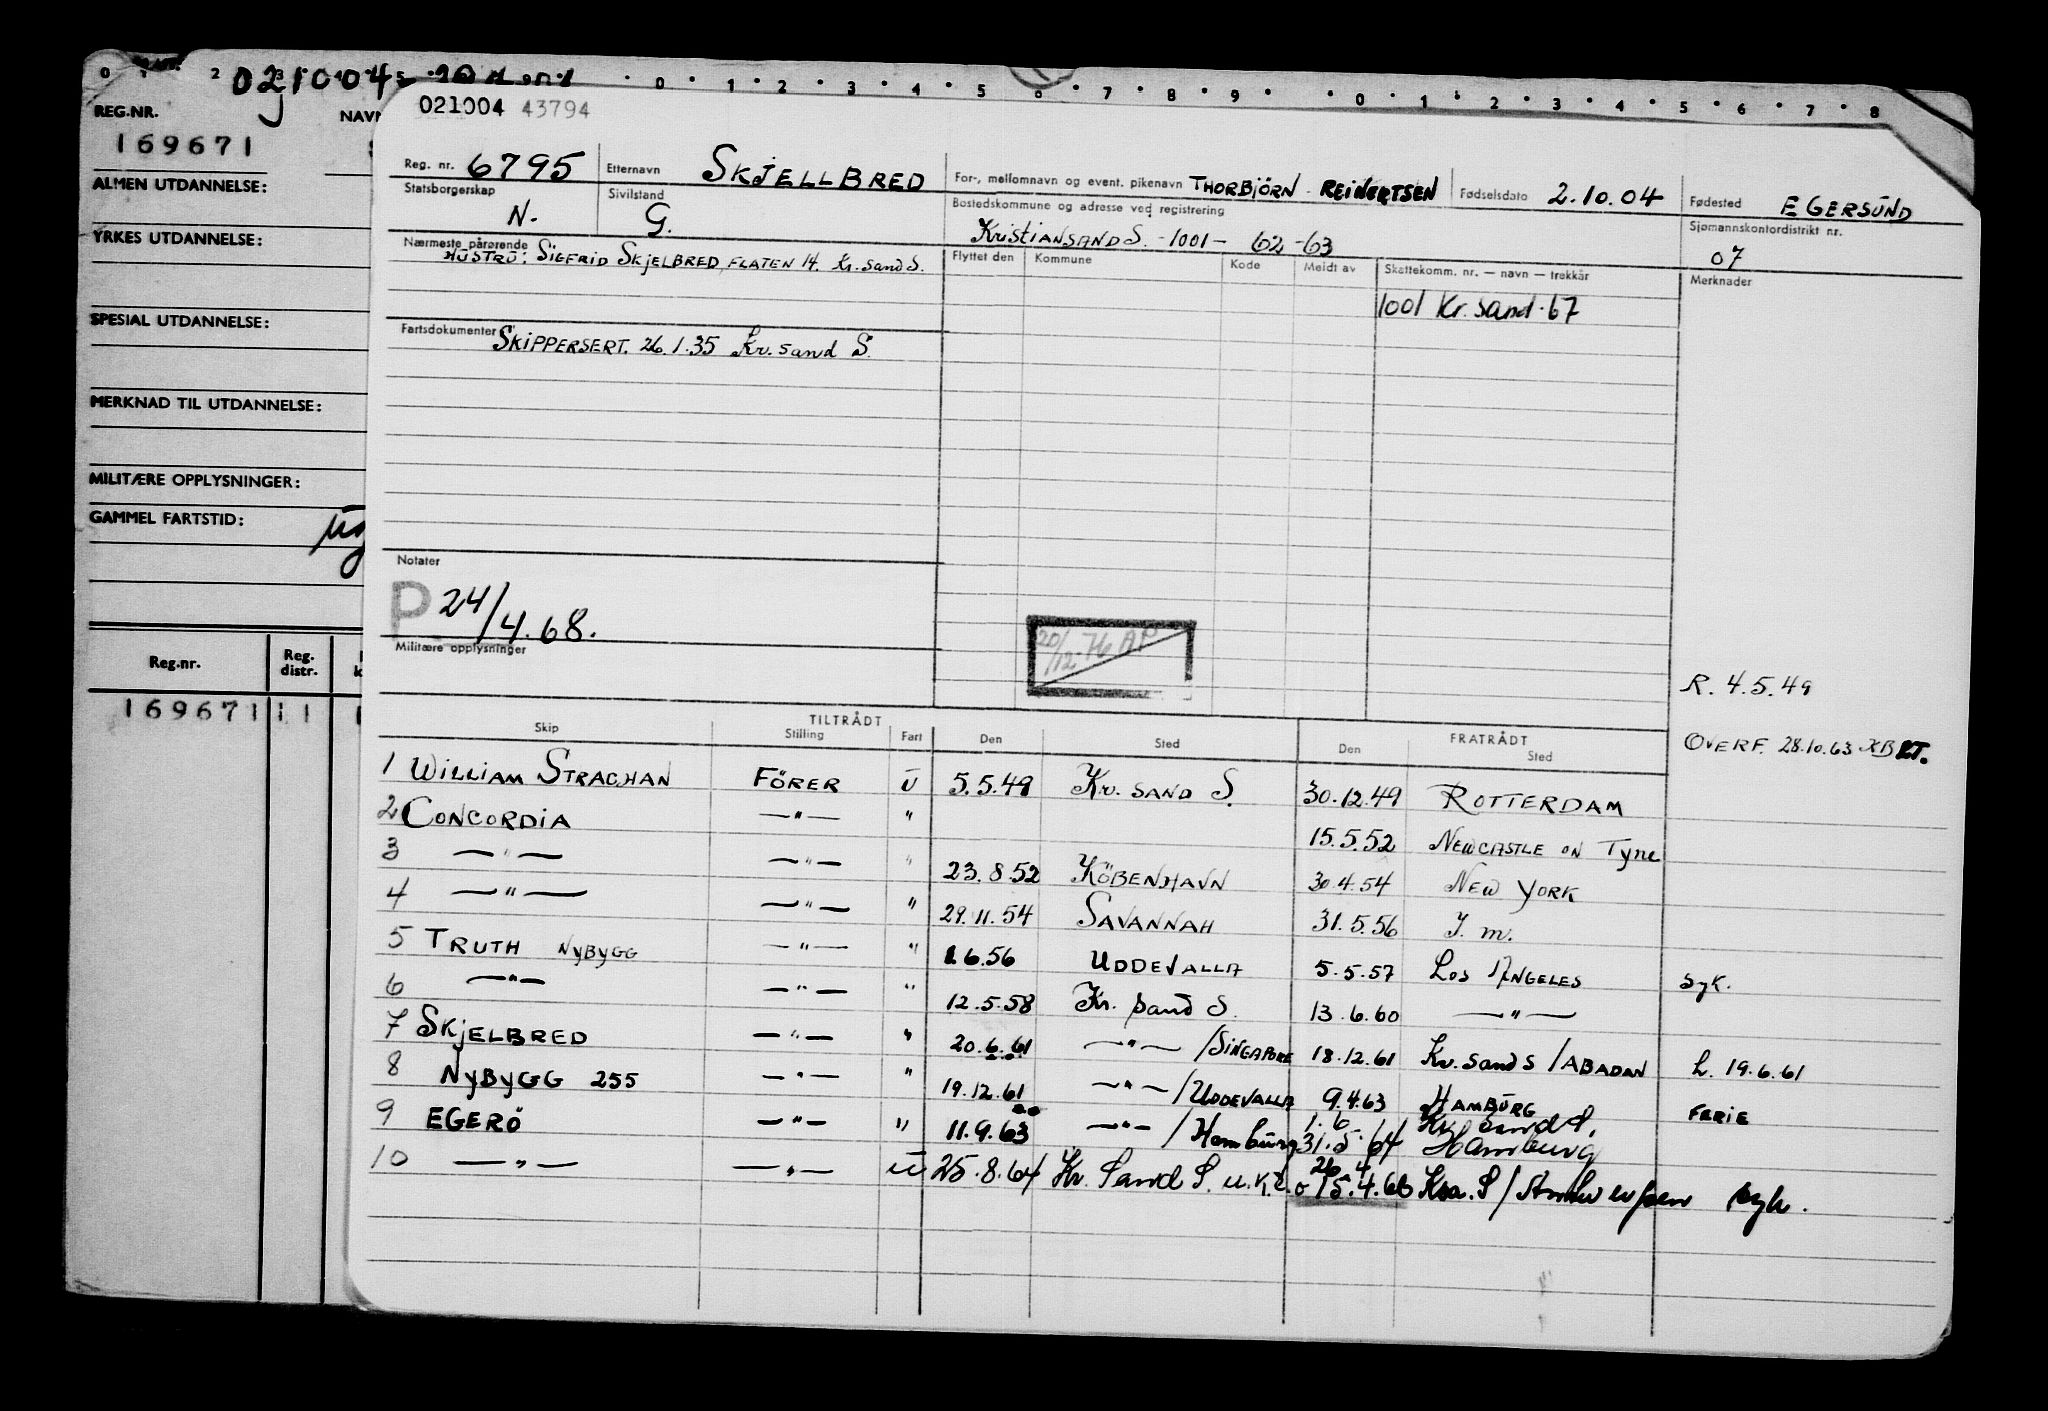 021004
REG.NR.
NAVN
169671
ALMEN UTDANNELSE:
YRKES UTDANNELSE:
SPESIAL UTDANNELSE:
MERKNAD TIL UTDANNELSE:
MILITÆRE OPPLYSNINGER:
GAMMEL FARTSTID:
Reg.nr. Reg. distr.
169671 11
0 1 2 3 4 5 6 7 8 9 0 1 2 3 4 5 6 7 8
021004 43794
Reg. nr. 6795 Etternavn SKJELLBRED For-, mellomnavn og event. pikenavn THORBJÖRN REINERTSEN Fødselsdato 2.10.04 Fødested EGERSUND
Statsborgerskap N. Sivilstand G. Bostedskommune og adresse ved registrering KRISTIANSAND S. -1001- 62-63 Sjømannskontordistrikt nr. 07
Nærmeste pårørende HUSTRU: SIGFRID SKJELBRED, FLATEN 14. Kr.sand S.
Flyttet den Kommune Kode Meldt av Skattekomm. nr. — navn — trekkår Merknader
1001 Kr.sand.67
Fartsdokumenter SKIPPERSERT. 26.1.35 Kr.sand S.
Notater
P 24/4.68.
20/12-76 AP
Militære opplysninger
R. 4.5.49
OVERF. 28.10.63
TILTRÅDT FRATRÅDT
Skip Stilling Fart Den Sted Den Sted
1 WILLIAM STRACHAN FÖRER U 5.5.49 Kr. SAND S. 30.12.49 ROTTERDAM
2 CONCORDIA —"— " 15.5.52 NEWCASTLE ON Tyne
3 —"— —"— " 23.8.52 KÖBENHAVN 30.4.54 NEW YORK
4 —"— —"— " 29.11.54 SAVANNAH 31.5.56 I. m.
5 TRUTH NYBYGG —"— " 1.6.56 UDDEVALLA 5.5.57 LOS ANGELES syk.
6 —"— —"— " 12.5.58 Kr. sand S. 13.6.60 —"—
7 SKJELBRED —"— " 20.6.61 —"— / SINGAPORE 18.12.61 Kr.sand S / ABADAN L. 19.6.61
8 NYBYGG 255 —"— " 19.12.61 —"— / UDDEVALLA 9.4.63 HAMBURG FERIE
9 EGERÖ —"— " 11.9.63 —"— / Hamburg 1.6 31.5.64 Kr. sand S. Hamburg
10 —"— —"— U 25.8.64 Kr. Sand S. 26.4 15.4.66 Krs. S / syk.